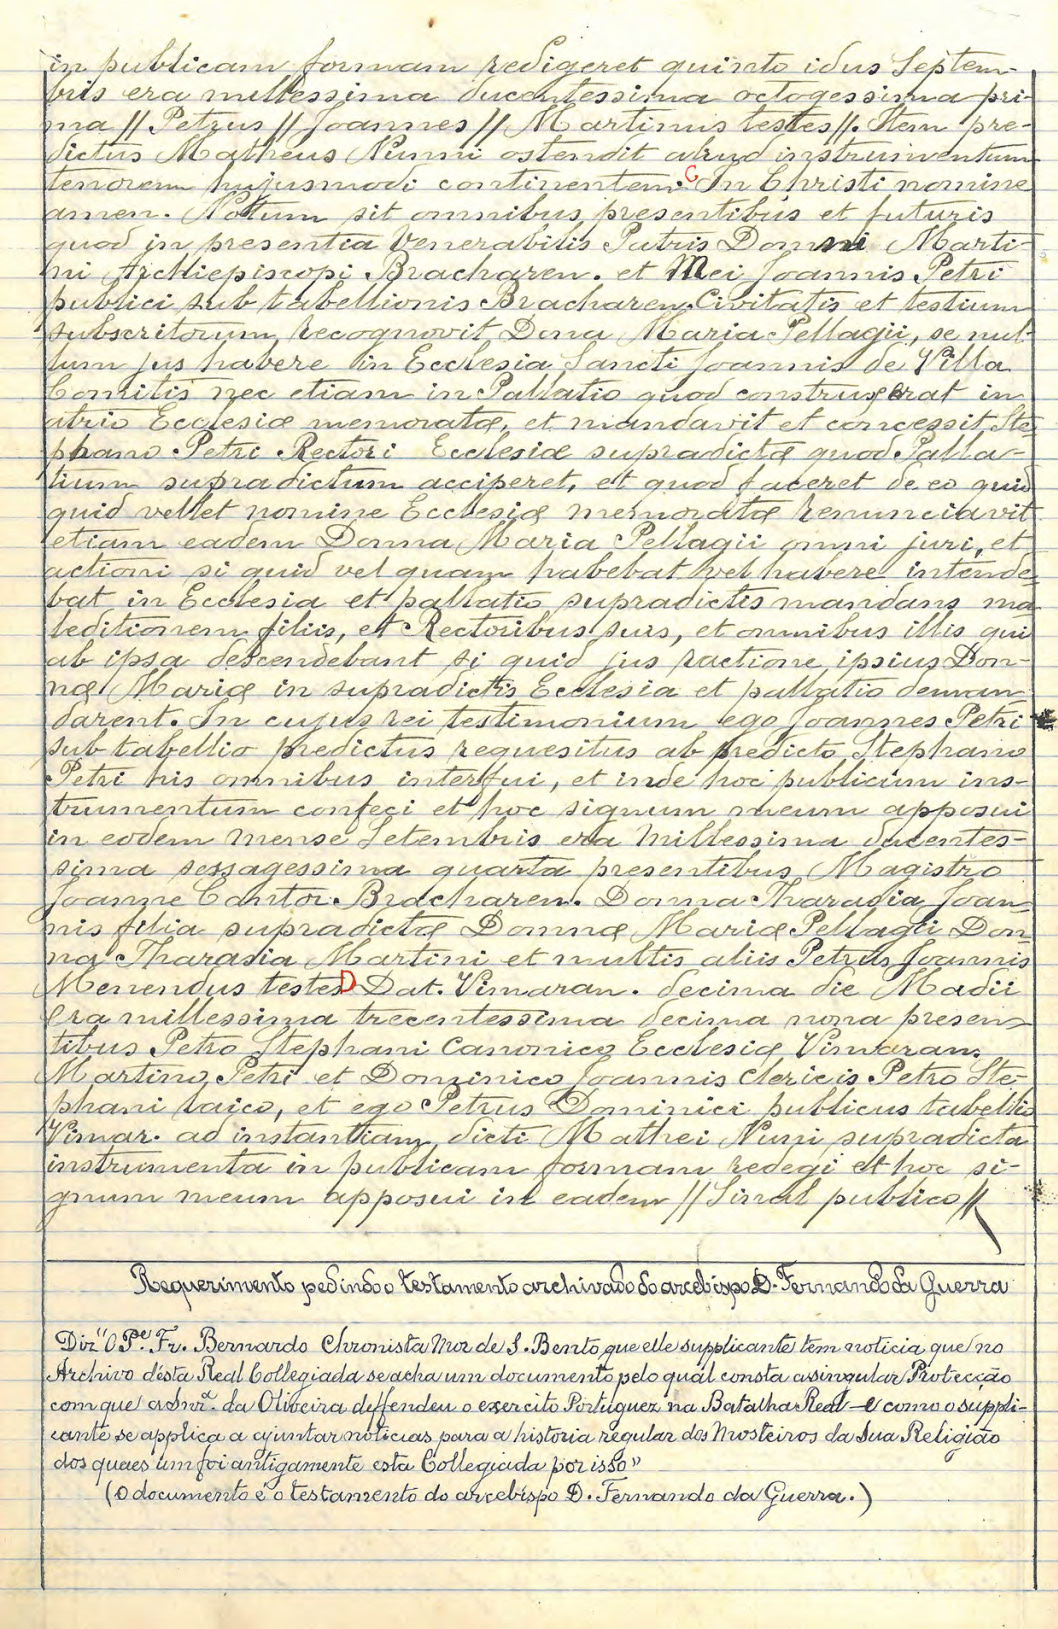 in publicam formam redigeret quinto idus Septem-
bris era millessima ducentessima octogessima pri-
ma // Petrus // Joannes // Martinus testes //. Item pre-
dictus Matheus Nunni ostendit aliud instrumentum
tenorem hujusmodi continentem. C In Christi nomine
amen. Notum sit omnibus presentibus et futuris
quod in presentia Venerabilis Patris Domni Marti-
ni Archiepiscopi Bracharen. et Mei Joannis Petri
publici sub tabellionis Bracharen. Civitatis et testium
subscritorum, recognovit Dona Maria Pellagii, se nul-
lum jus havere in Ecclesia Sancti Joannis de Villa
Comitis nec etiam in Pallatio quod construserat in
atrio Ecclesiæ memoratæ, et mandavit et concessit Ste-
phano Petri Rectori Ecclesiæ supradictæ quod Palla-
tium supradictum acciperet, et quod faceret de eo quid
quid vellet nomine Ecclesiæ memoratæ renunciavit
etiam eadem Donna Maria Pellagii omni juri, et
actioni si quid vel quam habebat vel havere intende-
bat in Ecclesia et pallatio supradictis mandans ma
leditionem filiis, et Rectoribus suis, et omnibus illis qui
ab ipsa descendebant si quid jus ractione ipsius Don-
næ Mariæ in supradictis Ecclesia et pallatio deman
darent. In cujus rei testimonium ego Joannes Petri
sub tabellio predictus requesitus ab predicto Stephano
Petri his omnibus interfui, et inde hoc publicum ins-
trumentum confeci et hoc signum meum apposui
in eodem mense Setembris era Millessima ducentes-
sima sessagessima quarta presentibus Magistro
Joanne Cantor. Bracharen. Donna Tharasia Joan-
nis filia supradictæ Domnæ Mariæ Pellagii Don-
na Tharasia Martini et multis aliis Petrus Joannis
Menendus testes D Dat. Vimaran. decima die Madii
era millessima trecentessima decima nona presen-
tibus Petro Stephani Canonico Ecclesiæ Vimaran.
Martino Petri et Dominico Joannis Clericis Petro Ste-
phani laico, et ego Petrus Dominici publicus tabellio
Vimar. ad instantiam dicti Mathei Nuni supradicta
instrumenta in publicam formam redegi et hoc si-
gnum meum apposui in eadem // Sinal publico //
Requerimento pedindo o testamento archivado do arcebispo D. Fernando da Guerra
Diz "O Pe. Fr. Bernardo Chronista Mor de S. Bento, que elle supplicante tem noticia que no
Archivo désta Real Collegiada se acha um documento pelo qual consta a singular Protecção
com que a Snrª. da Oliveira deffendeu o exercito Portuguez na Batalha Real — e como o suppli-
cante se applica a ajuntar noticias para a historia regular dos Mosteiros da Sua Religião
dos quaes um foi antigamente esta Collegiada por isso"
(O documento é o testamento do arcebispo D. Fernando da Guerra.)